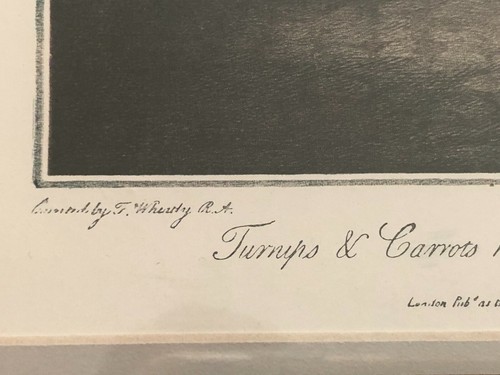 by F. Wheatly R.A.
Turnips & Carrots
London Pubd as